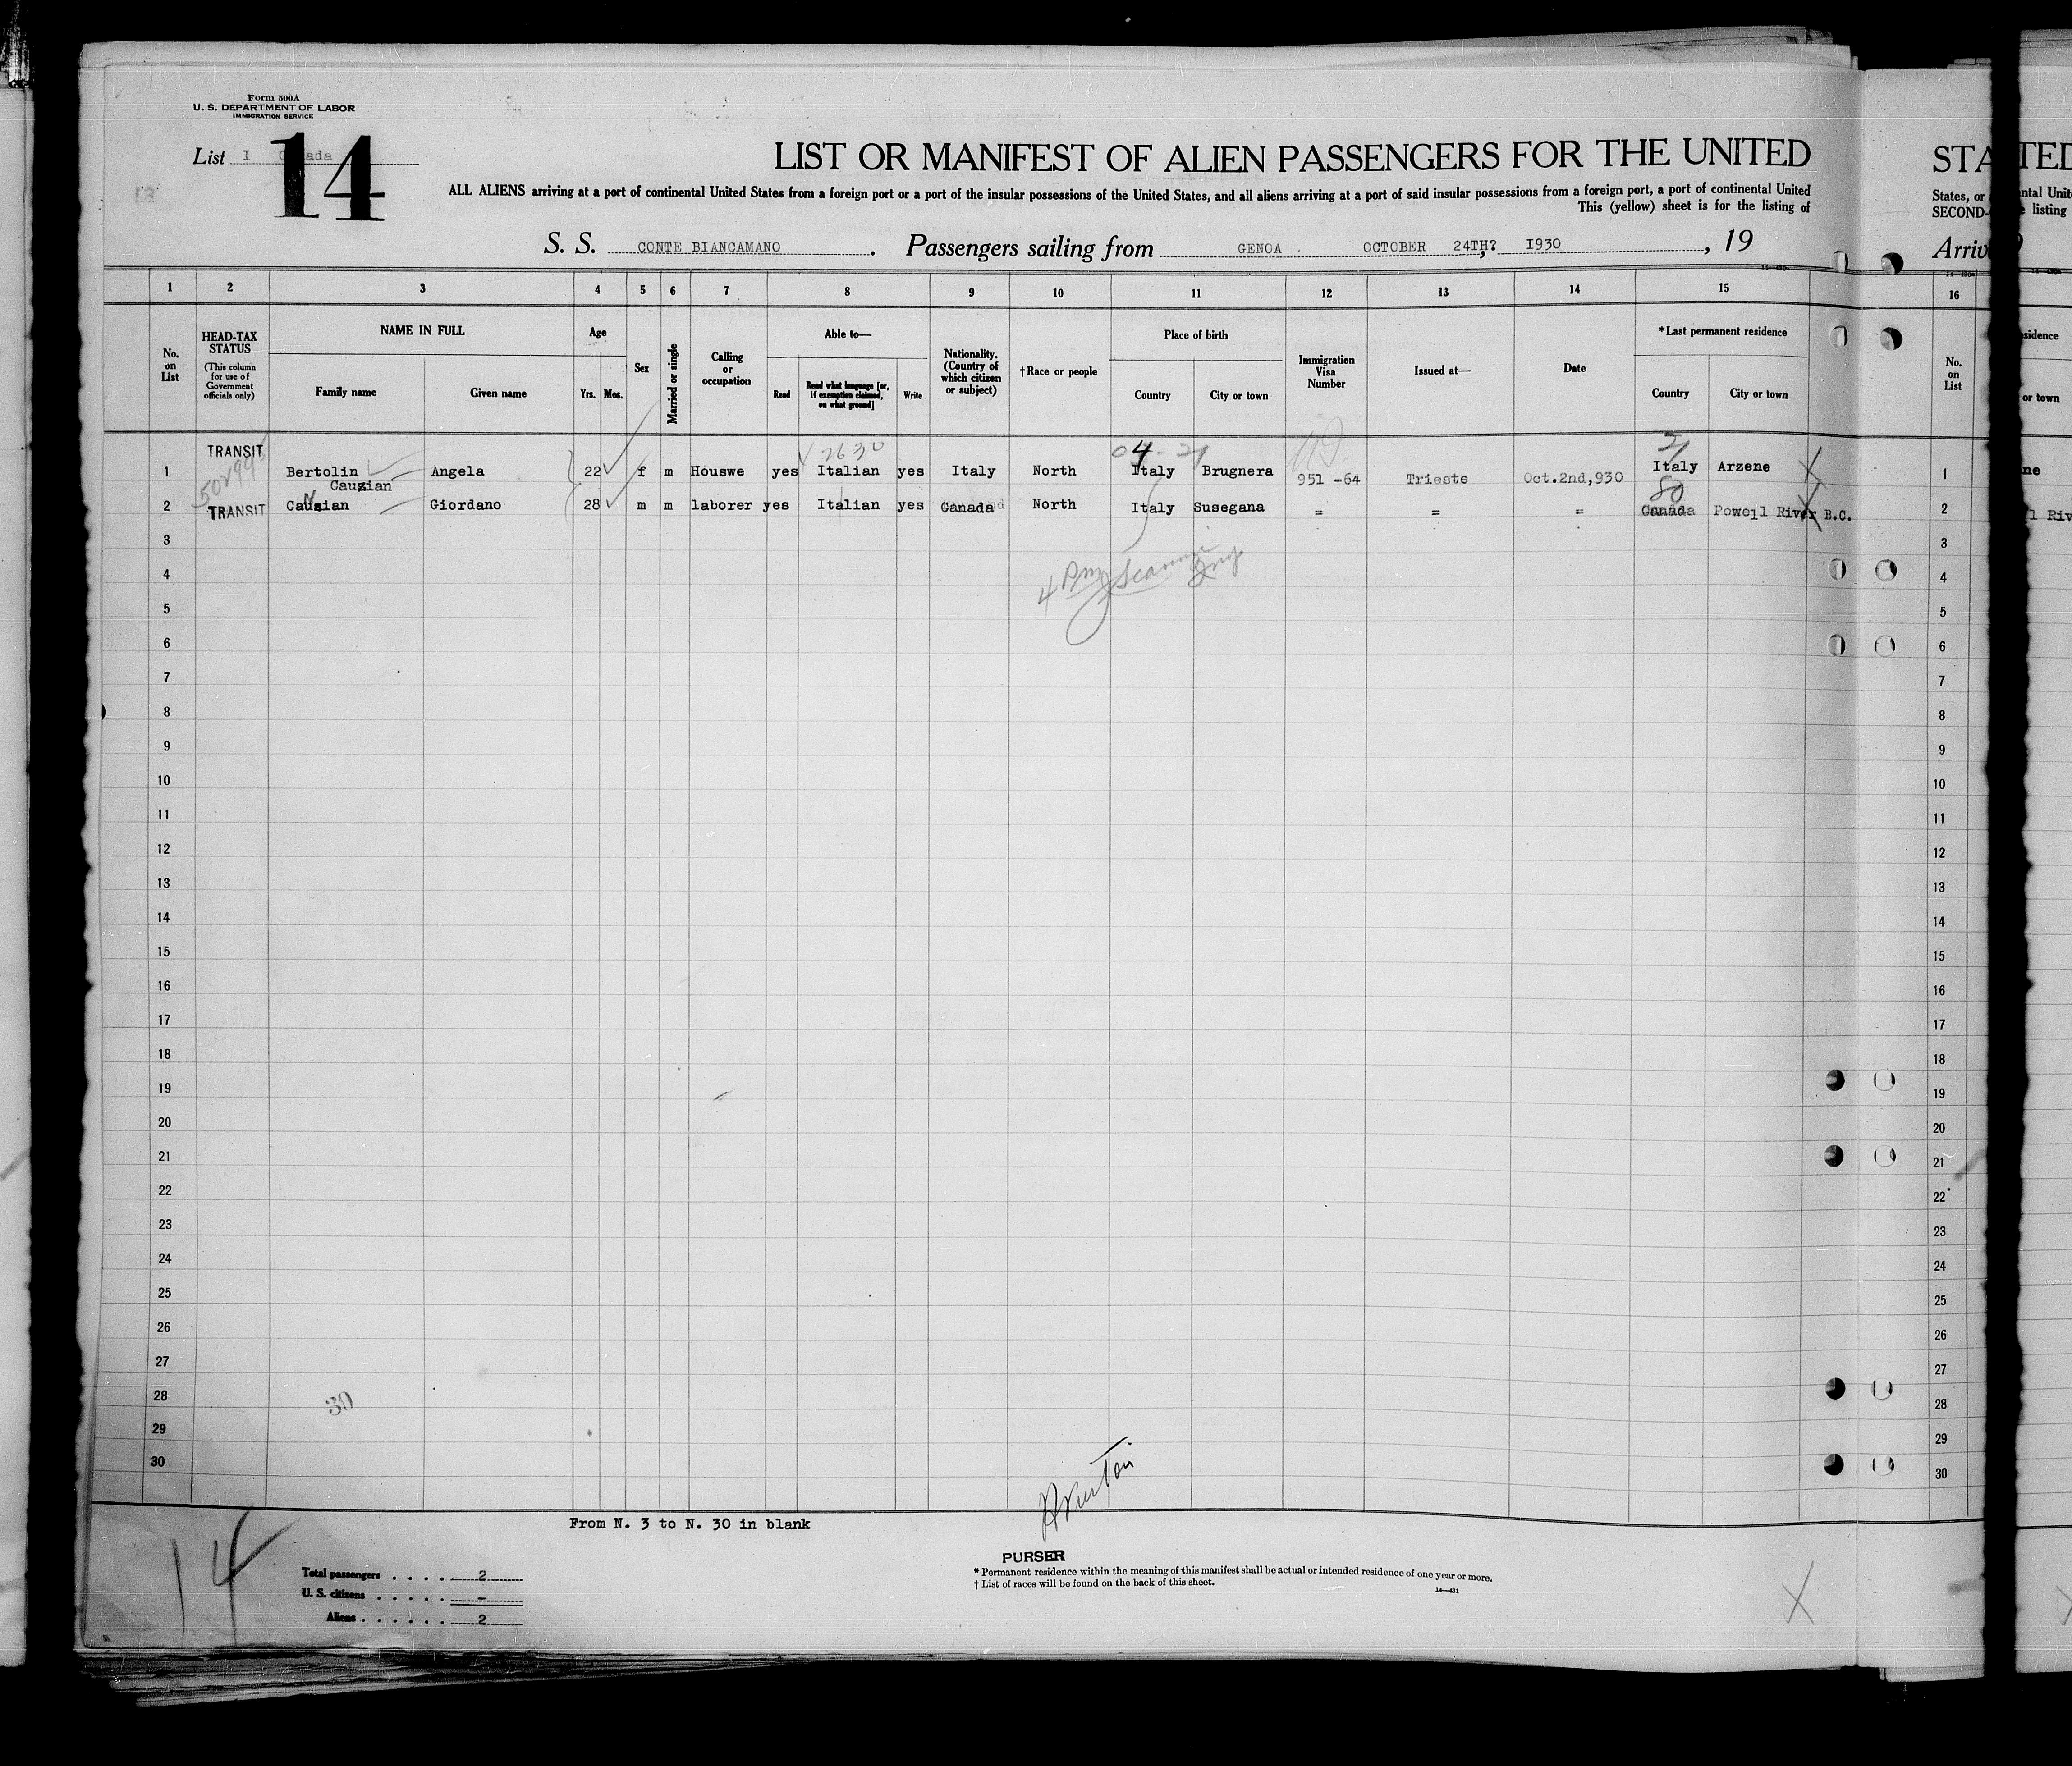 Form 500A
U. S. DEPARTMENT OF LABOR
IMMIGRATION SERVICE
List I Canada
14
LIST OR MANIFEST OF ALIEN PASSENGERS FOR THE UNITED
ALL ALIENS arriving at a port of continental United States from a foreign port or a port of the insular possessions of the United States, and all aliens arriving at a port of said insular possessions from a foreign port, a port of continental United
This (yellow) sheet is for the listing of
S. S. CONTE BIANCAMANO. Passengers sailing from GENOA OCTOBER 24TH? I930, 19
STATED
States, or
SECOND-
listing
Arriv
1 2 3 4 5 6 7 8 9 10 11 12 13 14 15 16
No. on List
HEAD-TAX STATUS
(This column for use of Government officials only)
NAME IN FULL
Family name Given name
Age
Yrs. Mos.
Sex
Married or single
Calling or occupation
Able to—
Read
Read what language [or, if exemption claimed, on what ground]
Write
Nationality. (Country of which citizen or subject)
†Race or people
Place of birth
Country City or town
Immigration Visa Number
Issued at—
Date
*Last permanent residence
Country City or town
No. on List
or town
04 21
2630
21
1 TRANSIT Bertolin Angela 22 f m Houswe yes Italian yes Italy North Italy Brugnera 951 -64 Trieste Oct.2nd,930 Italy Arzene 1
Cauzian
80
2 TRANSIT Causian Giordano 28 m m laborer yes Italian yes Canada North Italy Susegana = = = Canada Powell River B.C. 2
3 3
4 4
5 5
6 6
7 7
8 8
9 9
10 10
11 11
12 12
13 13
14 14
15 15
16 16
17 17
18 18
19 19
20 20
21 21
22 22
23 23
24 24
25 25
26 26
27 27
28 28
30
29 29
30 30
From N. 3 to N. 30 in blank
14
Total passengers . . . . . 2
U. S. citizens . . . . . –
Aliens . . . . . . 2
PURSER
* Permanent residence within the meaning of this manifest shall be actual or intended residence of one year or more.
† List of races will be found on the back of this sheet.
14—431